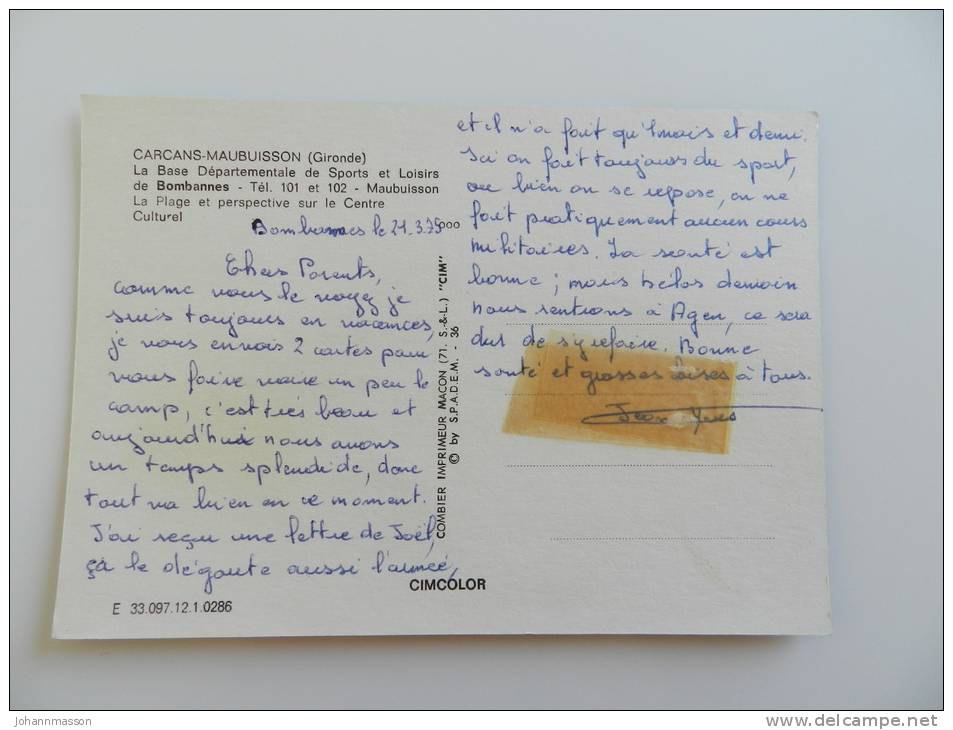 CARCANS-MAUBUISSON (Gironde)
La Base Départementale de Sports et Loisirs
de Bombannes - Tél. 101 et 102 - Maubuisson
La Plage et perspective sur le Centre
Culturel
Bombannes le 21.3.75
Chers Parents,
comme vous le voyez je
suis toujours en vacances,
je vous envois 2 cartes pour
vous faire voire un peu le
camp, c'est très beau et
aujourd'hui nous avons
un temps splendide, donc
tout va bien en ce moment.
J'ai reçu une lettre de Joël,
ça le dégoute aussi l'armée,
E 33.097.12.1.0286
000
COMBIER IMPRIMEUR MACON (71. S.-&-L.) "CIM"
© by S.P.A.D.E.M. - 36
CIMCOLOR
et il n'a fait qu'1 mois et demi.
Ici on fait toujours du sport,
ou bien on se repose, on ne
fait pratiquement aucun cours
militaires. La santé est
bonne ; mais hélas demain
nous rentrons à Agen, ce sera
dur de s'y refaire. Bonne
santé et grosses bises à tous.
Jean Yves
johannmasson
www.delcampe.net